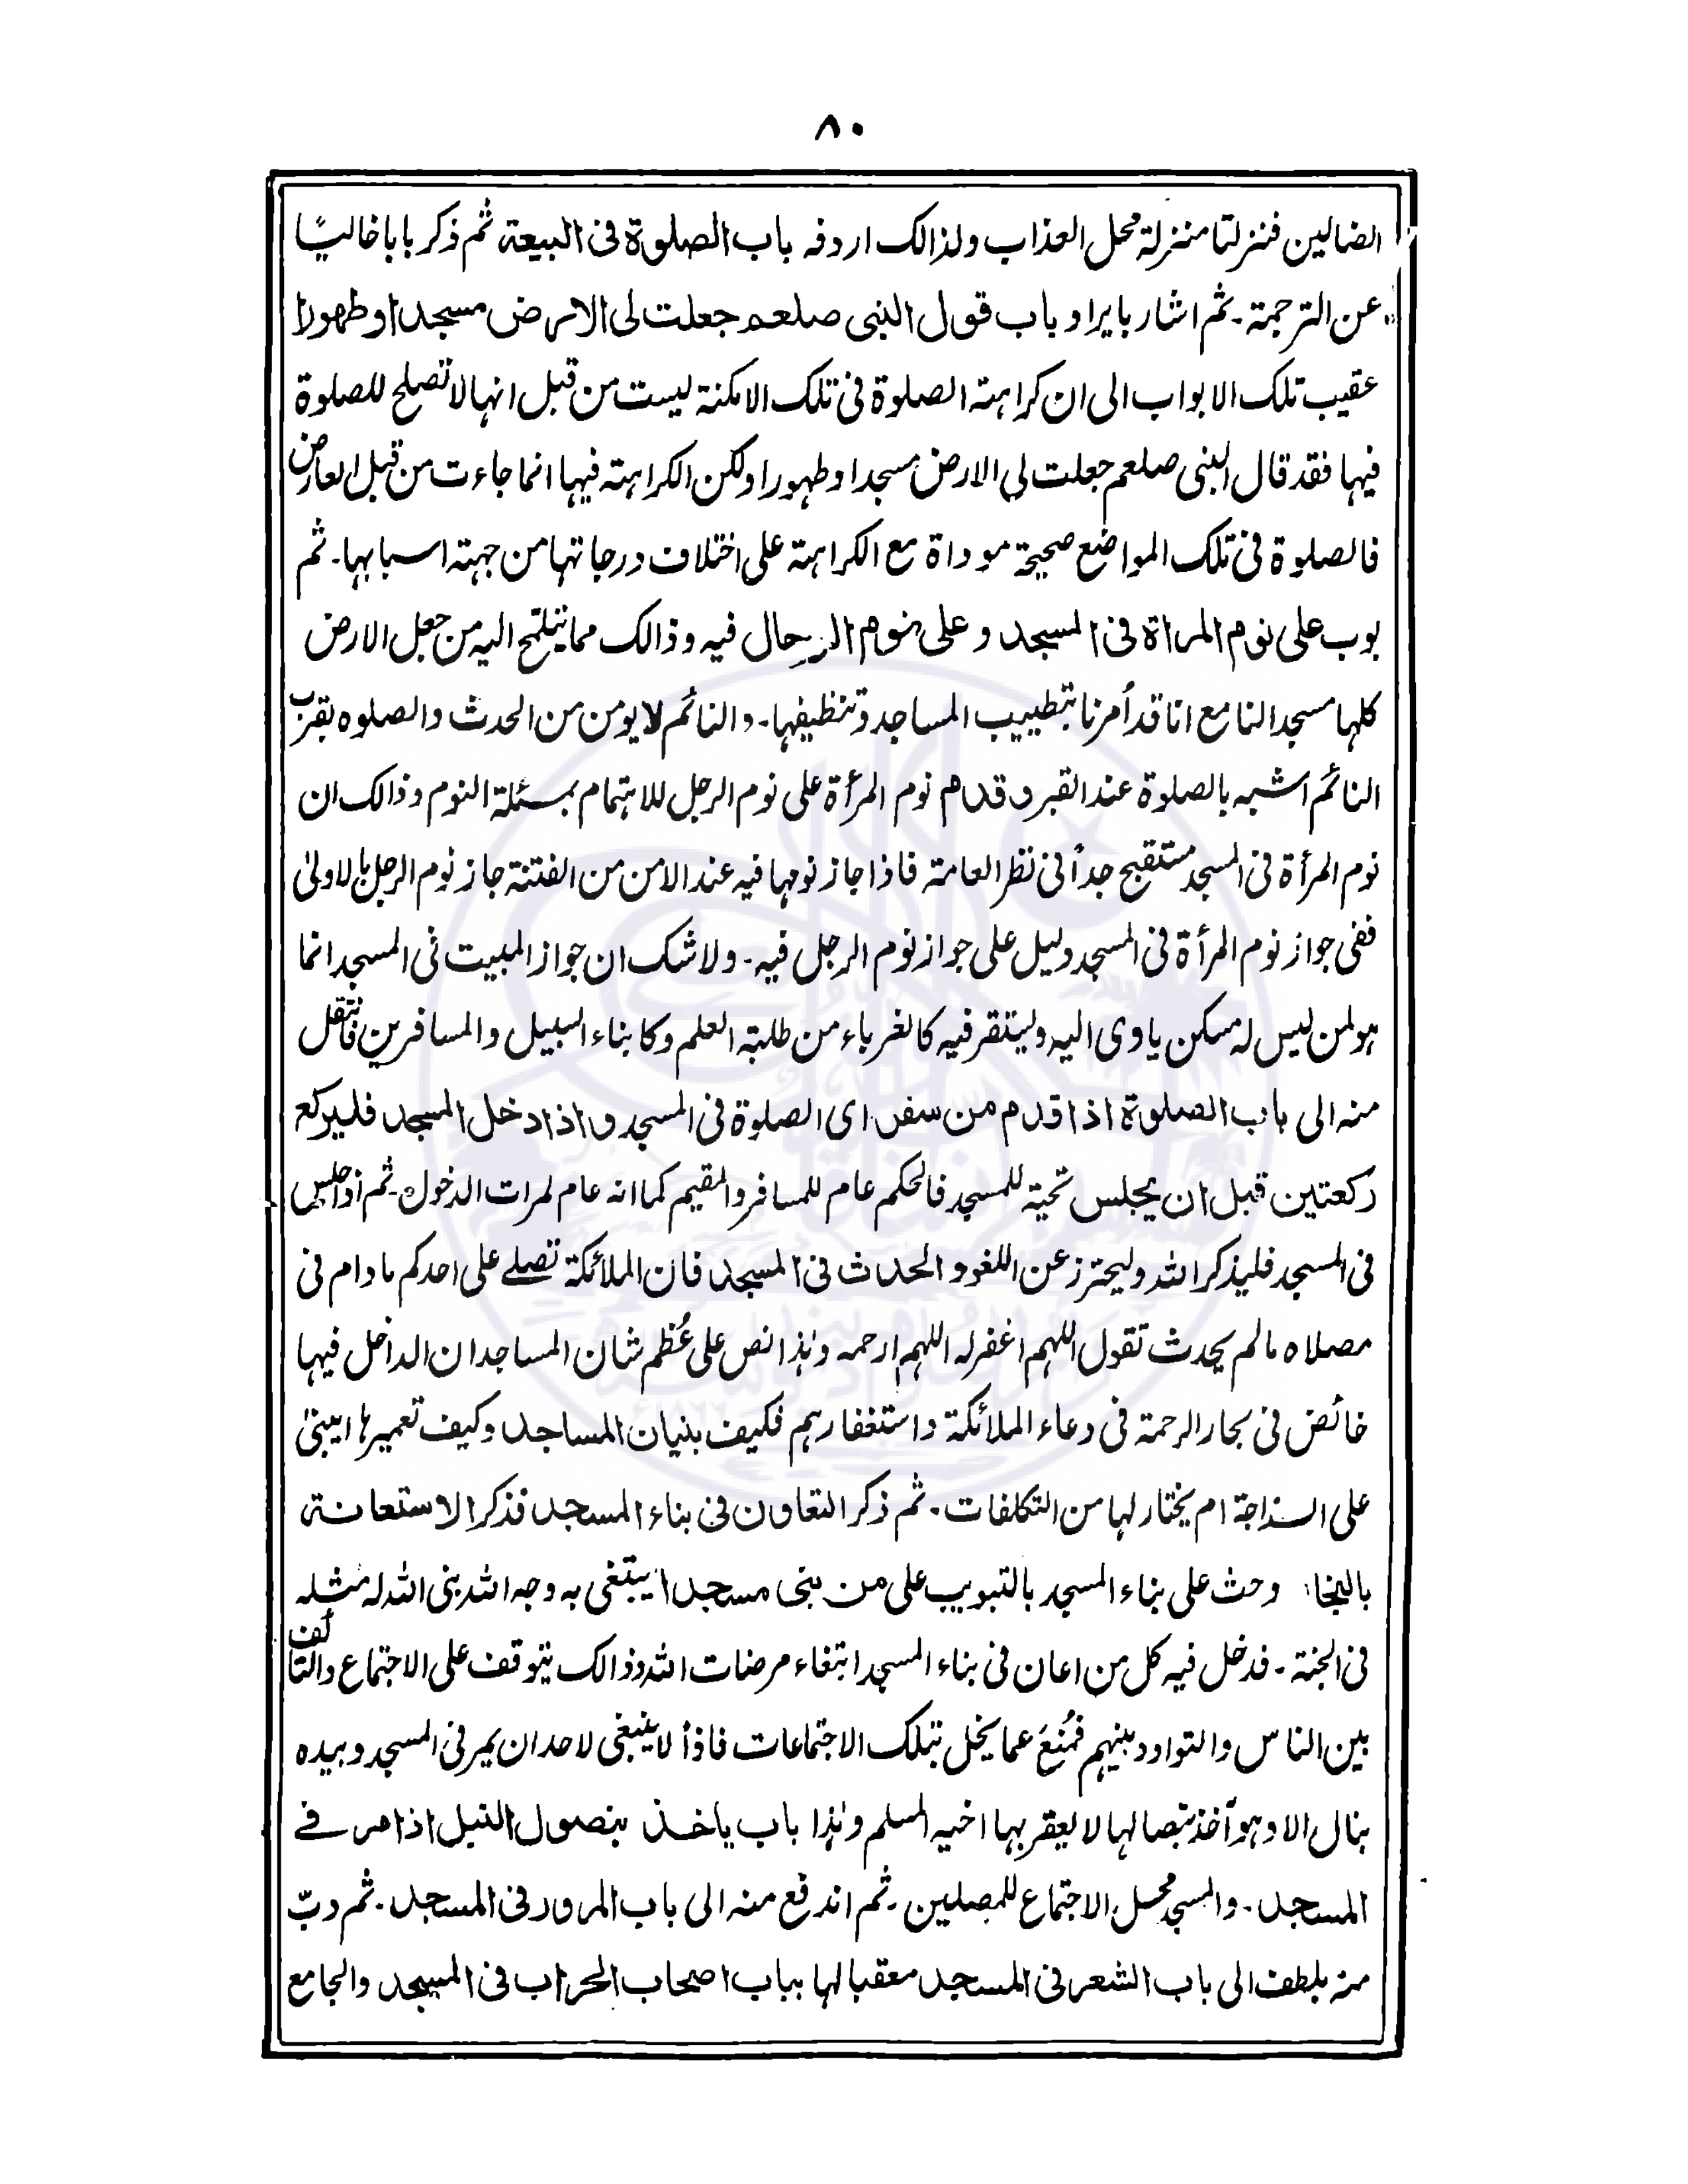 ٨٠
الضالين فنزلتا منزلة محل العذاب ولذالك اردفه باب الصلوة فى البيعة ثم ذكر بابا خاليًا
عن الترجمة ـ ثم اشار بايراد باب قول النبى صلعم جعلت لى الارض مسجدا وطهورا
عقيب تلك الابواب الى ان كراهتہ الصلوة فى تلك الامكنة ليست من قبل انها لا تصلح للصلوة
فيها فقد قال النبى صلعم جعلت لى الارض مسجدا وطهورا ولكن الكراهتہ فيها انما جاءت من قبل العارض
فالصلوة فى تلك المواضع صحيحة موداة مع الكراهتہ على اختلاف درجاتها من جهتہ اسبابها ـ ثم
بوب على نوم المراة فى المسجد و على نوم الرجال فيه وذالك مما يتلمح اليه من جعل الارض
كلها مسجدا لنا مع انا قد أمرنا بتطييب المساجد وتنظيفها ـ والنائم لا يومن من الحدث والصلوه بقرب
النائم اشبه بالصلوة عند القبر و قدم نوم المرأة على نوم الرجل للاهتمام بمسئلة النوم وذالك ان
نوم المرأة فى المسجد مستقبح جدأ فى نظر العامة فاذا جاز نومها فيه عند الامن من الفتنة جاز نوم الرجل بالاولىٰ
ففى جواز نوم المرأة فى المسجد دليل على جواز نوم الرجل فيه ـ ولا شك ان جواز المبيت فى المسجد انما
هو لمن ليس له مسكن ياوى اليه وليتقر فيه كالغرباء من طلبة العلم وكابناء السبيل والمسافرين فانتقل
منه الى باب الصلوة اذا قدم من سفر اى الصلوة فى المسجد و اذا دخل المسجد فليركع
ركعتين قبل ان يجلس تحية للمسجد فالحكم عام للمسافر والمقيم كما انه عام لمرات الدخول ـ ثم اذا جلس
فى المسجد فليذكر الله وليحترز عن اللغو و الحدث فى المسجد فان الملائكة تصلے على احدكم ما دام فى
مصلاه ما لم يحدث تقول اللهم اغفر له اللهم ارحمه وهٰذا نص على عُظم شان المساجد ان الداخل فيها
خائض فى بحار الرحمة فى دعاء الملائكة و استغفارهم فكيف بنيان المساجد وكيف تعميرها ايبنىٰ
على السذاجة ام يختار لها من التكلفات ـ ثم ذكر التعاون فى بناء المسجد فذكر الاستعانة
بالنجار وحث على بناء المسجد بالتبويب على من بنى مسجدا يبتغى به وجه الله بنى الله له مثله
فى الجنة ـ فدخل فيه كل من اعان فى بناء المسجد ابتغاء مرضات الله وذالك يتوقف على الاجتماع والتالف
بين الناس والتوادد بينهم فمُنِعَ عما يخل بتلك الاجتماعات فاذأ لا ينبغى لاحد ان يمر فى المسجد وبيده
بنال الا وهو آخذ بنصالها لا ليعقر بها اخيه المسلم وهٰذا باب ياخذ بنصول النبل اذا مر فے
المسجد ـ والمسجد محل الاجتماع للمصلين ـ ثم اندفع منه الى باب المرور فى المسجد ـ ثم دبّ
منه بلطف الى باب الشعر فى المسجد معقبا لها بباب اصحاب الحراب فى المسجد والجامع